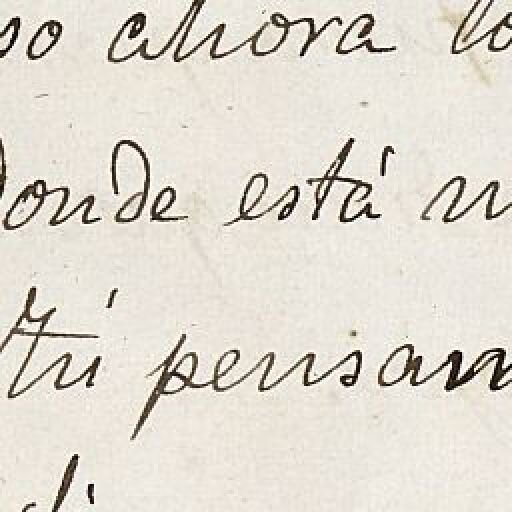 so ahora lo
Donde está m
Tú pensam
di